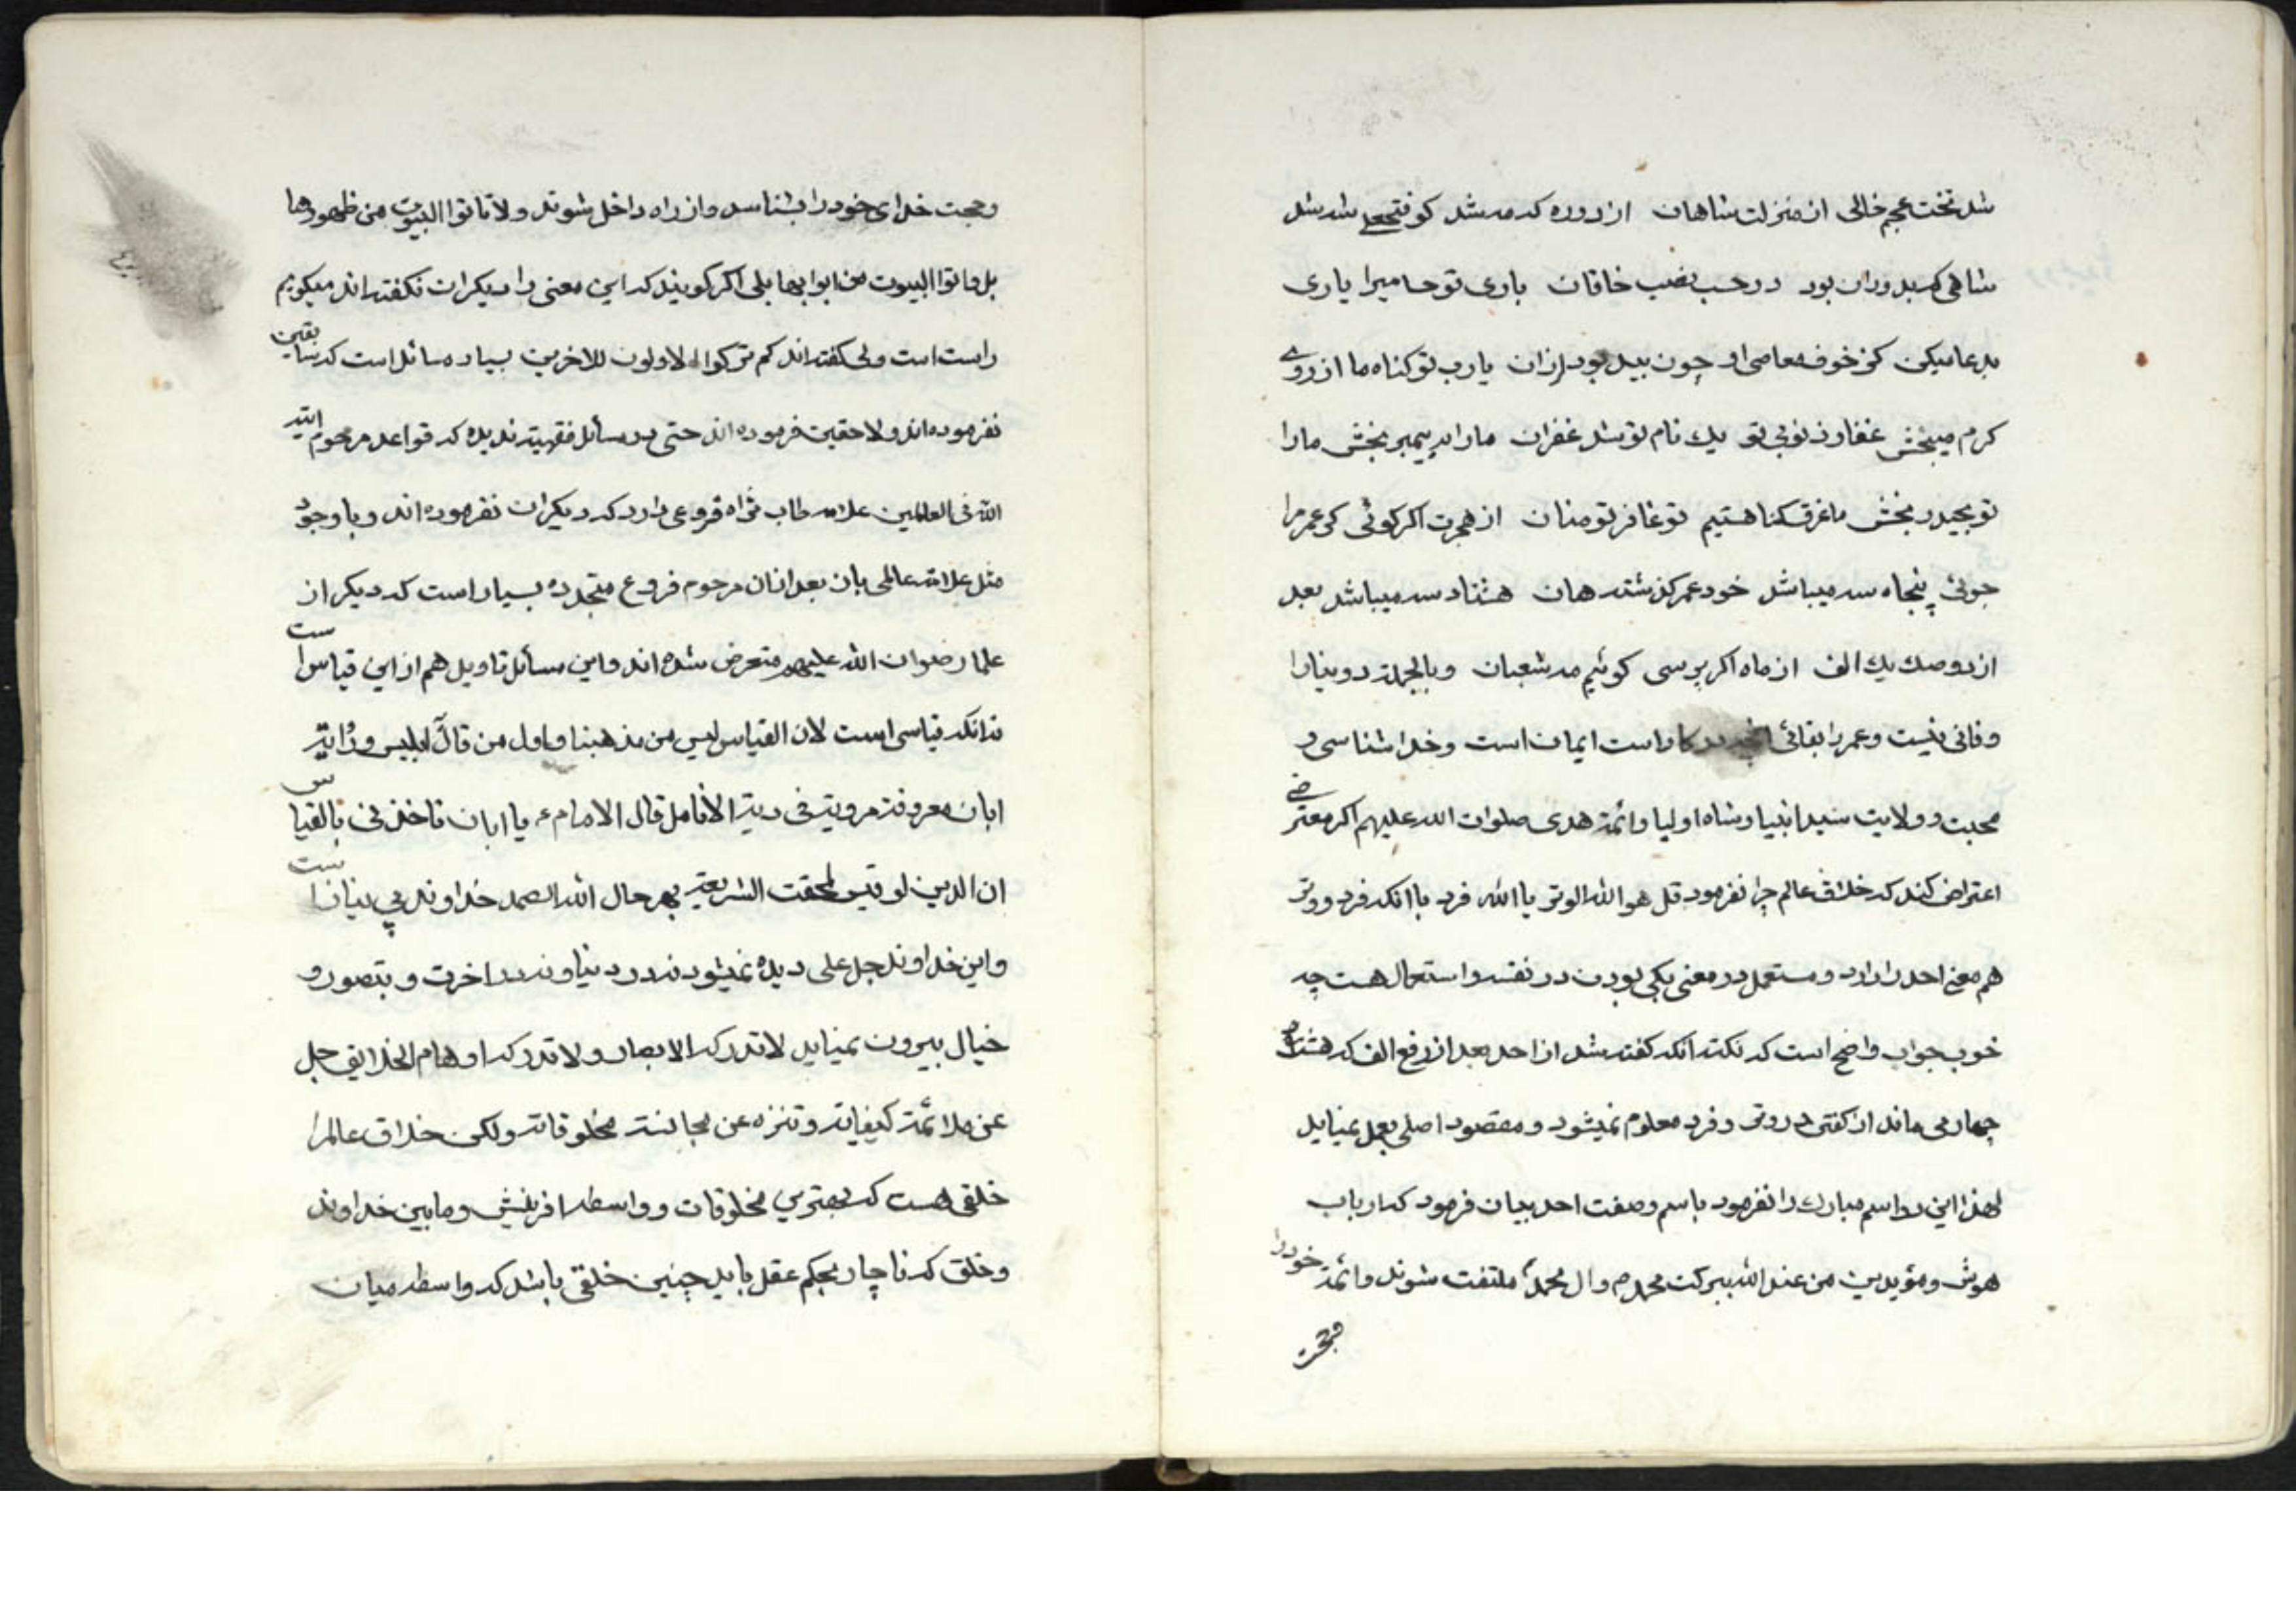 شد تخت عجم خالی از منزلت شاهان از دوره که مه شد کو فتحعلی شه شد
شاهی که بدوران بود در حسب نصب خاقان باری تو حامیرا یاری
بدعا میکن کز خوف معاصی او چون بید بود لرزان یا رب تو کناه ما از روی
کرم میبخش غفار ذنوبی تو یك نام تو شد غفران ما را به پیمبر بخش ما را
تو بحیدر بخش ما غرق کناهستیم تو غافر تو منان از هجرت اکر کوئی کی عمر مرا
جوئی پنجاه سه میباشد خود عمر کذشته هان هشتاد سه میباشد بعد
از دوصد یك الف از ماه اکر پرسی کوئیم مه شعبان وبالجمله دو بنارا
وفانی نیست وعمر را بقائی انچه بکار است ایمان است وخدا شناسی و
محبت و ولایت سید انبیا وشاه اولیا وائمه هدی صلوات الله علیهم اکر معترضی
اعتراض کند که خلاق عالم چرا نفرمود قل هو الله الوتر یا الله فرد با انکه فرد ووتر
هم معنی احد را دارد ومستعمل در معنی یکی بودن در نفسه واستعمال هست چه
خوب جواب واضح است که نکته انکه کفته شد از احد بعد از رفع الف که هشت و
چهار می ماند از کفتن وتر وفرد معلوم نمیشود ومقصود اصلی بعمل نمیاید
لهذا این دو اسم مبارك را نفرمود باسم وصفت احد بیان فرمود که ارباب
هوش ومؤیدین من عند الله ببرکت محمد ص وال محمد ملتفت شوند وائمه خود را
وحجت
وحجت خدای خود را بشناسد واز راه داخل شوند ولا تاتوا البیوت من ظهورها
بل واتوا البیوت من ابوابها بلی اکر کویند که این معنی را دیکران نکفته اند میکویم
راست است ولی کفته اند کم ترکوا الاولون للاخرین بسیار مسائل است که سابقین
نفرموده اند ولاحقین فرموده اند حتی در مسائل فقهیه ندیده که قواعد مرحوم ایة
الله فی العالمین علامه طاب ثراه فروعی دارد که دیکران نفرموده اند وبا وجود
مثل علامه عالمی باز بعد از ان مرحوم فروع متجدده بسیار است که دیکر از
علما رضوان الله علیهم متعرض شده اند واین مسائل تاویل هم از این قیاس است
نه انکه قیاسی است لان القیاس لیس من مذهبنا واول من قال ابلیس وروایة
ابان معروفة مرویة فی دیة الانامل قال الامام ع یا ابان تاخذنی بالقیاس
ان الدین لو قیس لمحقت الشریعة بهرحال الله الصمد خداوند بی نیاز است
واین خداوند جل علی دیده نمیشود نه در دنیا ونه در اخرت وبتصور و
خیال بیرون نمیاید لا تدرکه الابصار ولا تدرکه اوهام الخلایق جل
عن ملائمة کیفیاته وتنزه عن مجانسة مخلوقاته ولکن خلاق عالمرا
خلقی هست که بهترین مخلوقات وواسطه افرینش ومابین خداوند
وخلق که ناچار بحکم عقل باید چنین خلقی باشد که واسطه میان